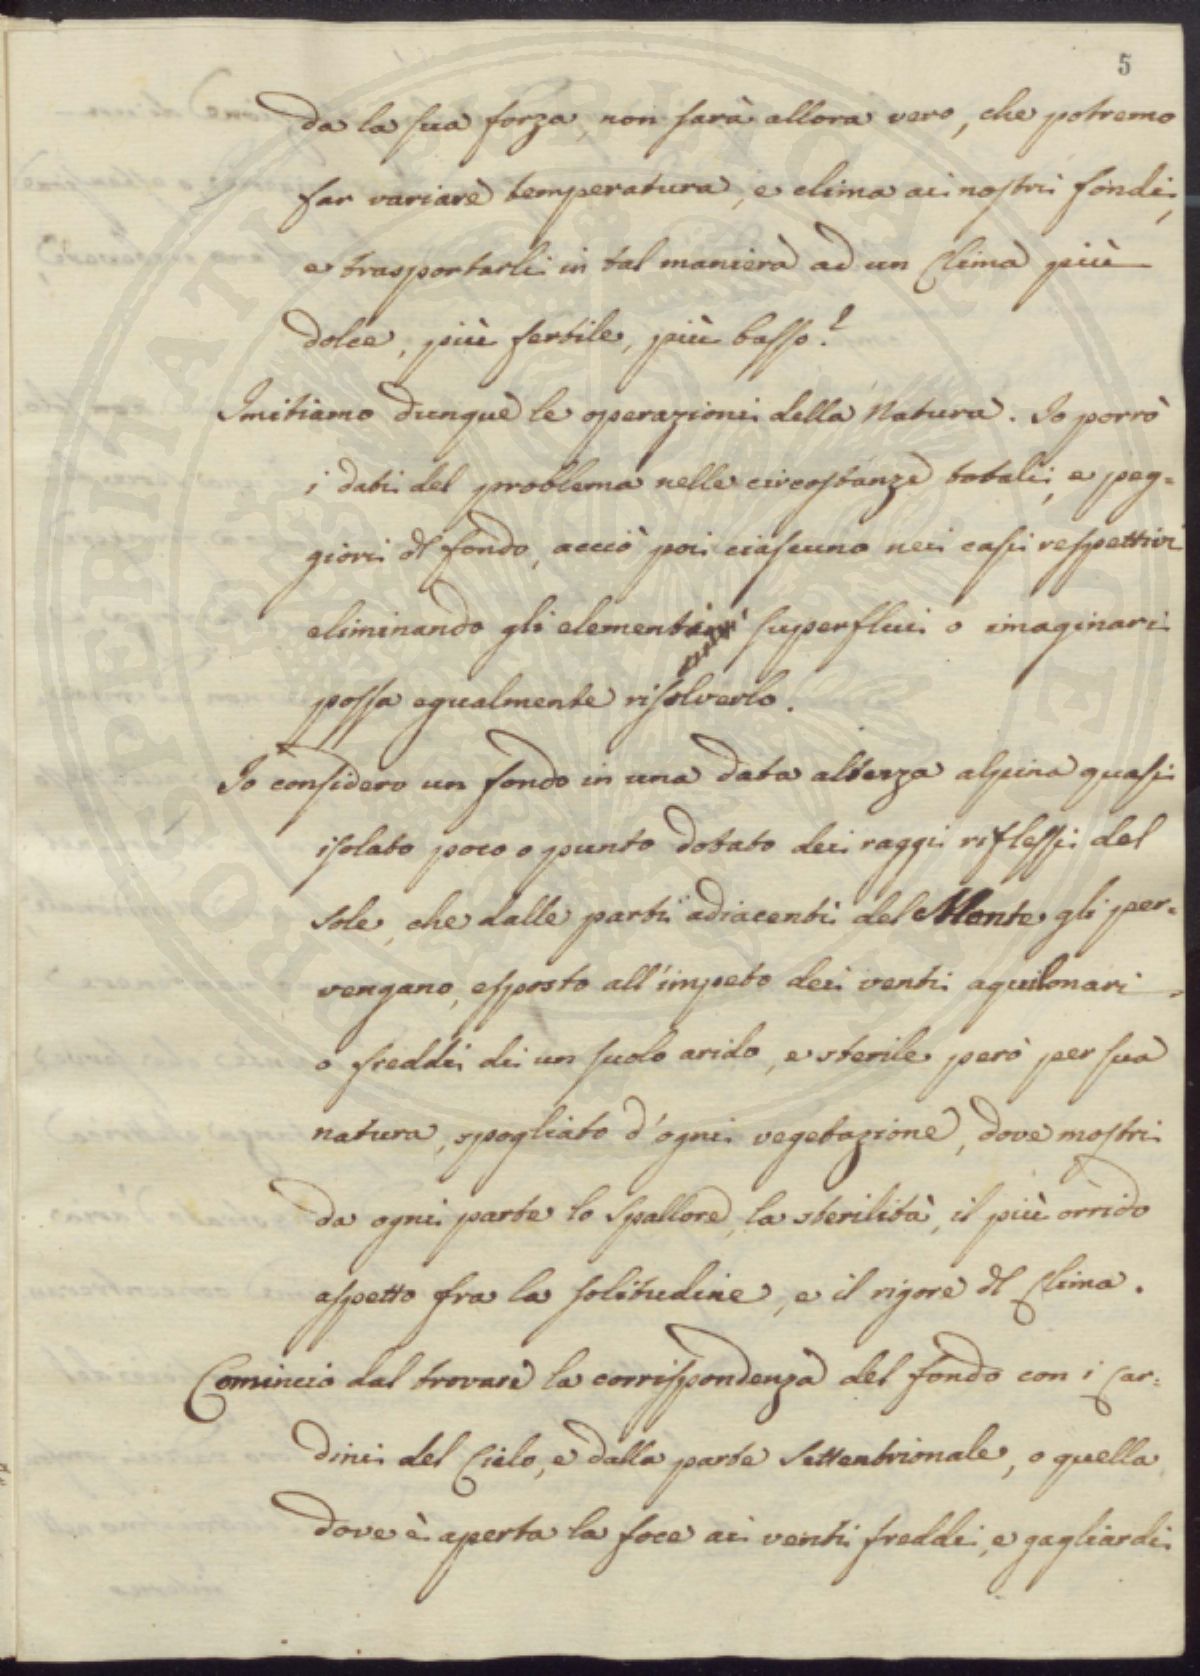 5
da la sua forza, non sarà allora vero, che potremo
far variare temperatura, e clima ai nostri fondi,
e trasportarli in tal maniera ad un Clima più
dolce, più fertile, più basso?
Imitiamo dunque le operazioni della Natura. Io porrò
i dati del problema nelle circostanze totali, e peg=
giori dl fondo, acciò poi ciascuno nei casi respettivi
eliminando gli elementi superflui o imaginari
possa egualmente risolverlo.
Io considero un fondo in una data altezza alpina quasi
isolato poco o punto dotato dei raggi riflessi del
sole, che dalle parti adiacenti del Monte gli per=
vengano, esposto all'impeto dei venti aquilonari
o freddi di un suolo arido, e sterile però per sua
natura, spogliato d'ogni vegetazione, dove mostri
da ogni parte lo spallore, la sterilità, il più orrido
aspetto fra la solitudine, e il rigore dl Clima.
Comincio dal trovare la corrispondenza del fondo con i Car=
dini del Cielo, e dalla parte settentrionale, o quella
dove è aperta la foce ai venti freddi, e gagliardi
PROSPERITATI PUBLICAE AUGENDAE